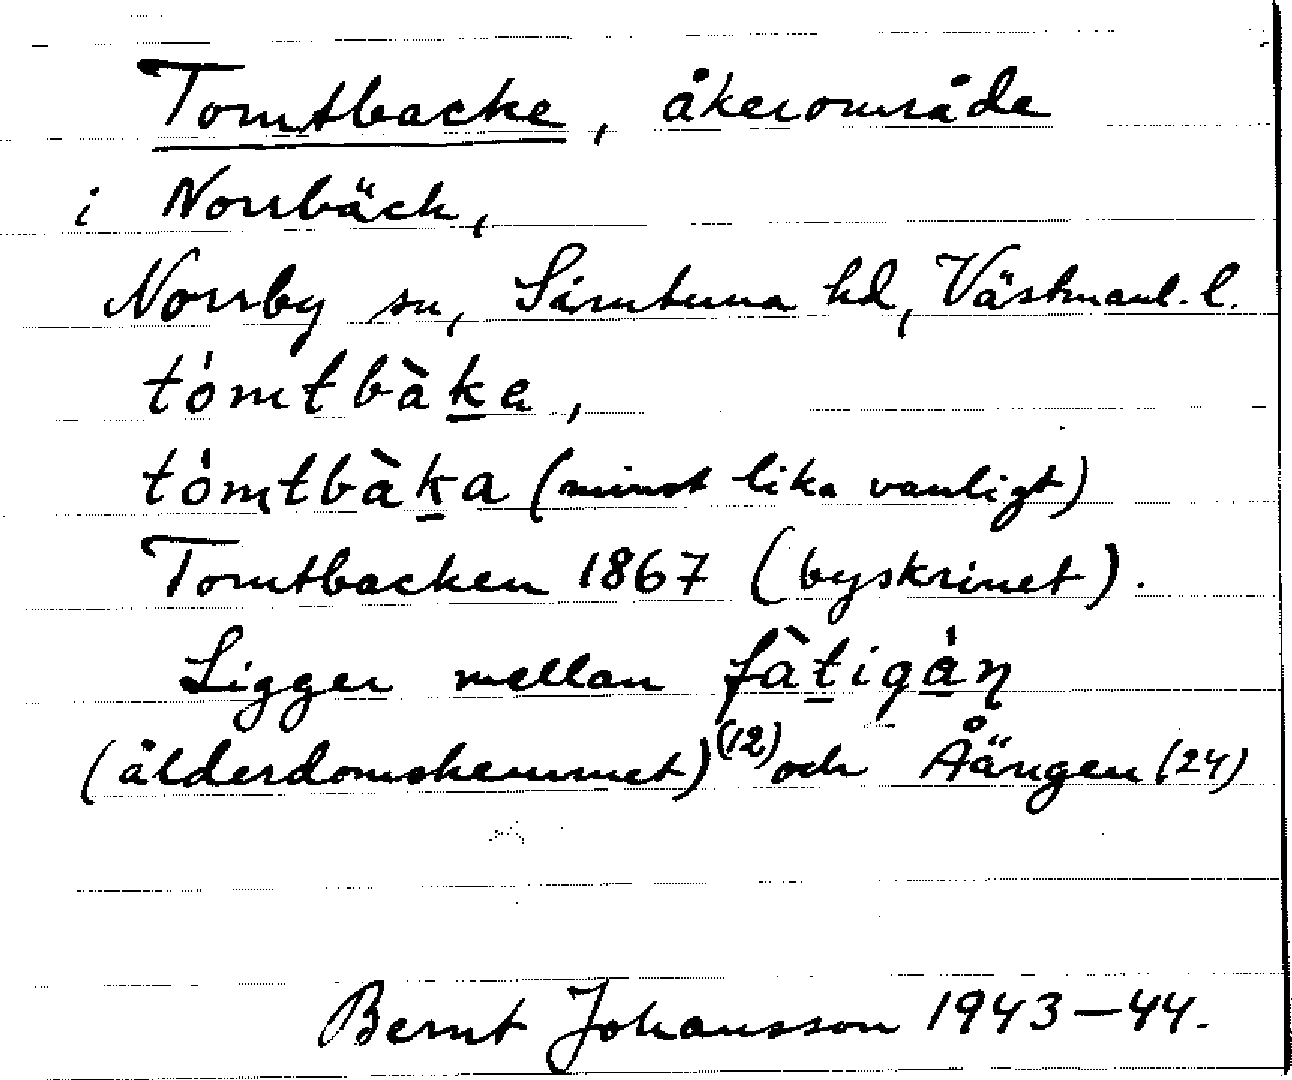 Tomtbacke, åkerområde
i Norrbäck,
Norrby sn, Simtuna hd, Västmanl. l.
tómtbàka,
tómtbàka (minst lika vanligt)
Tomtbacken 1867 (byskrinet).
Ligger mellan fàtigàn
(ålderdomshemmet) (12) och Åängen (24)
Bernt Johansson 1943–44.